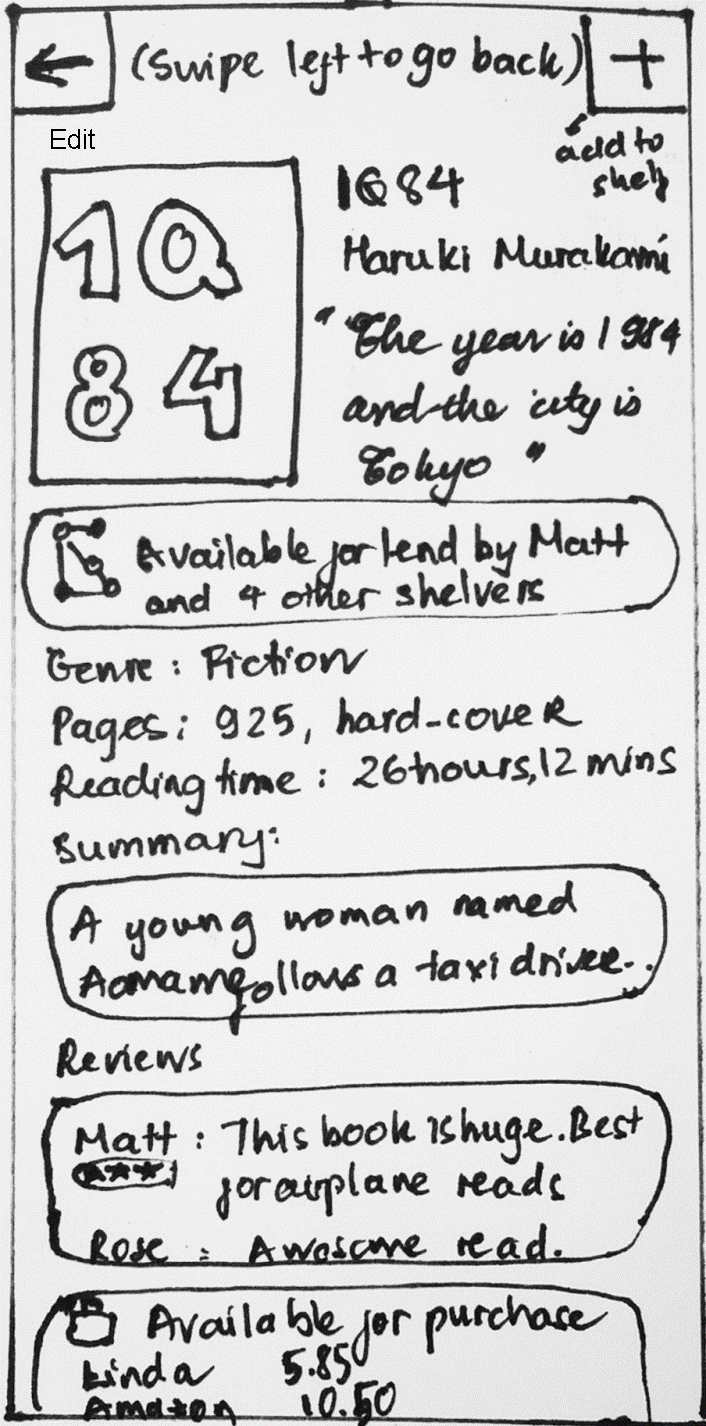 (Swipe left to go back)
+
add to
shelf
Edit
1Q
84
1Q84
Haruki Murakami
"The year is 1984
and the city is
Tokyo"
Available for lend by Matt
and 4 other shelvers
Genre: Fiction
Pages: 925, hard-cover
Reading time: 26 hours, 12 mins
Summary:
A young woman named
Aomame follows a taxi driver..
Reviews
Matt: This book is huge. Best
for airplane reads
Rose: Awesome read.
Available for purchase
5.85
Amazon 10.50